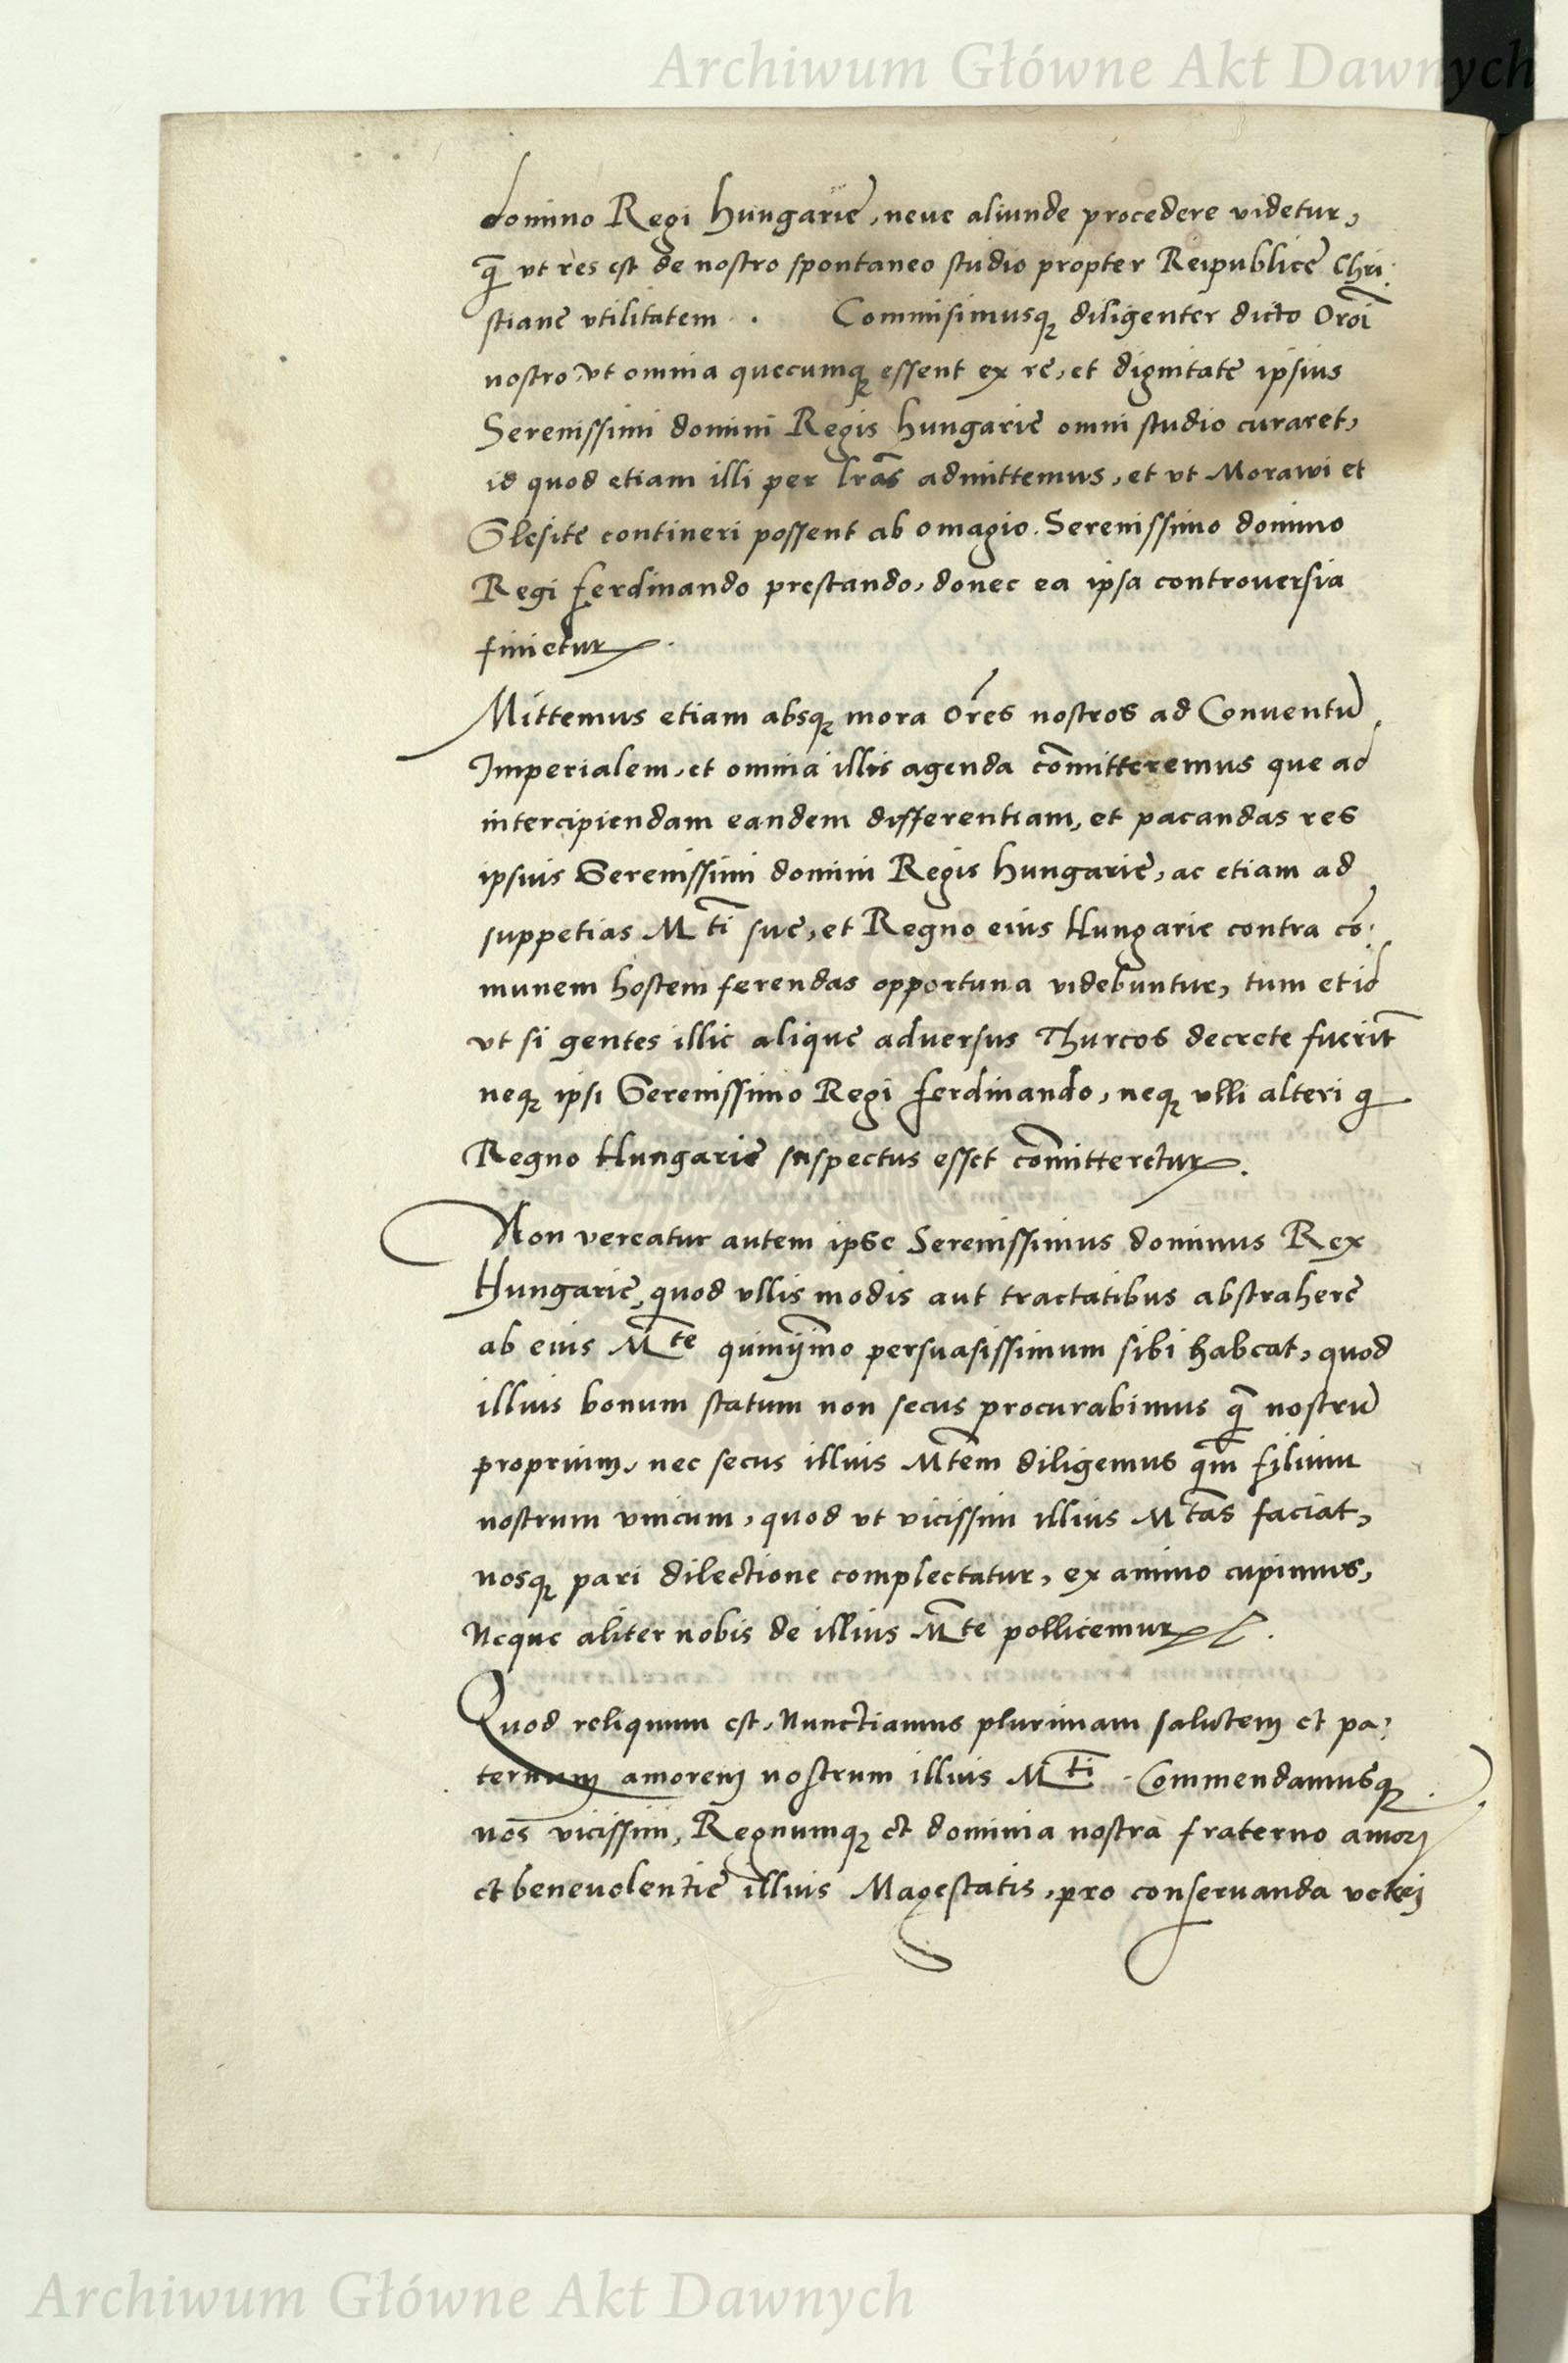 Archiwum Główne Akt Dawnych
domino Regi hungarie, neue aliunde procedere videtur,
q̃ vt res est de nostro spontaneo studio propter Reipublice Chri:
stiane vtilitatem . Commisimusq₃ diligenter dicto Oroĩ
nostro vt omnia quecumq₃ essent ex re, et dignitate ipsius
Serenissimi domini Regis hungarie omni studio curaret,
id quod etiam illi per lrãs admittemus, et vt Morawi et
Slesite contineri possent ab omagio Serenissimo domino
Regi ferdinando prestando, donec ea ipsa controuersia
finietur.
Mittemus etiam absq₃ mora Or̃es nostros ad Conuentũ
Imperialem, et omnia illis agenda com̃itteremus que ad
intercipiendam eandem differentiam, et pacandas res
ipsius Serenissimi domini Regis hungarie, ac etiam ad
suppetias M̃ti sue, et Regno eius Hungarie contra cõ:
munem hostem ferendas opportuna videbuntur, tum et id
vt si gentes illic alique aduersus Thurcos decrete fuerĩt
neq₃ ipsi Serenissimo Regi ferdinando, neq₃ vlli alteri q̃
Regno Hungarie suspectus esset com̃itteretur.
Non vereatur autem ipse Serenissimus dominus Rex
Hungarie, quod vllis modis aut tractatibus abstrahere
ab eius M̃te quinÿm̃o persuasissimum sibi habeat, quod
illius bonum statum non secus procurabimus q̃ nostrũ
proprium, nec secus illius M̃tem diligemus qm̃ filium
nostrum vnicum, quod vt vicissim illius M̃tas faciat,
nosq₃ pari dilectione complectatur, ex animo cupimus,
Neque aliter nobis de illius M̃te pollicemur.
Quod reliquum est, Nunctiamus plurimam salutem et pa:
ternum amorem nostrum illius M̃ti. Commendamusq₃
nos vicissim, Regnumq₃ et dominia nostra fraterno amori
et beneuolentie illius Magestatis, pro conseruanda veteri
Archiwum Główne Akt Dawnych